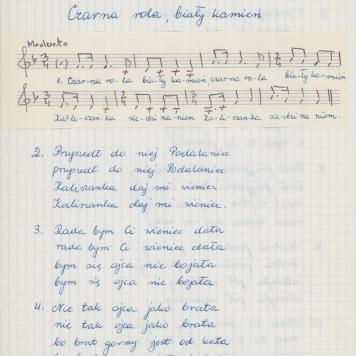 Czarna rola, biały kamień
Moderato
1. Czar-na ro-la bia-ły ka-mień, czar-na ro-la bia-ły ka-mień
sie-dzi na niem sie-dzi na niem.
2. Przyszedł do niej Podolaniec
przyszedł do niej Podolaniec
Kalisanka daj mi wieniec
Kalisanka daj mi wieniec.
3. Rada bym Ci wieniec dała
rada bym Ci wieniec dała
bym się ojca nie bojała
bym się ojca nie bojała
4. Nie tak ojca jako brata
nie tak ojca jako brata
bo brat gorszy jest od kata